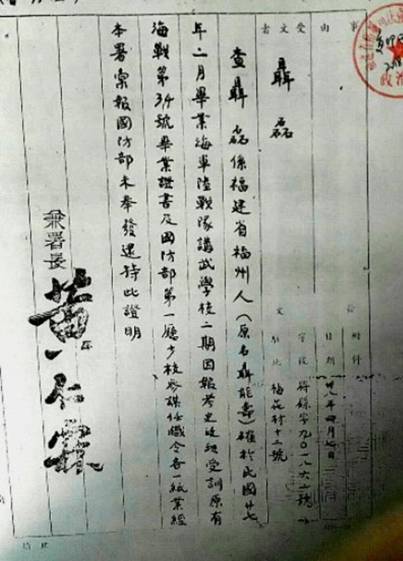 事由
受文者 聶磊
附件
日期 卅八年四月七日
字號
駐地 梅花村十三號
查聶磊係福建省福州人（原名聶能壽）確於民國廿七
年二月畢業海軍陸戰隊講武學校二期因報考 受訓原有
海戰第34號畢業證書及國防部第一廳少校參謀任職令各一紙業經
本署彙報國防部未奉發還特此證明
兼署長 黄仁霖